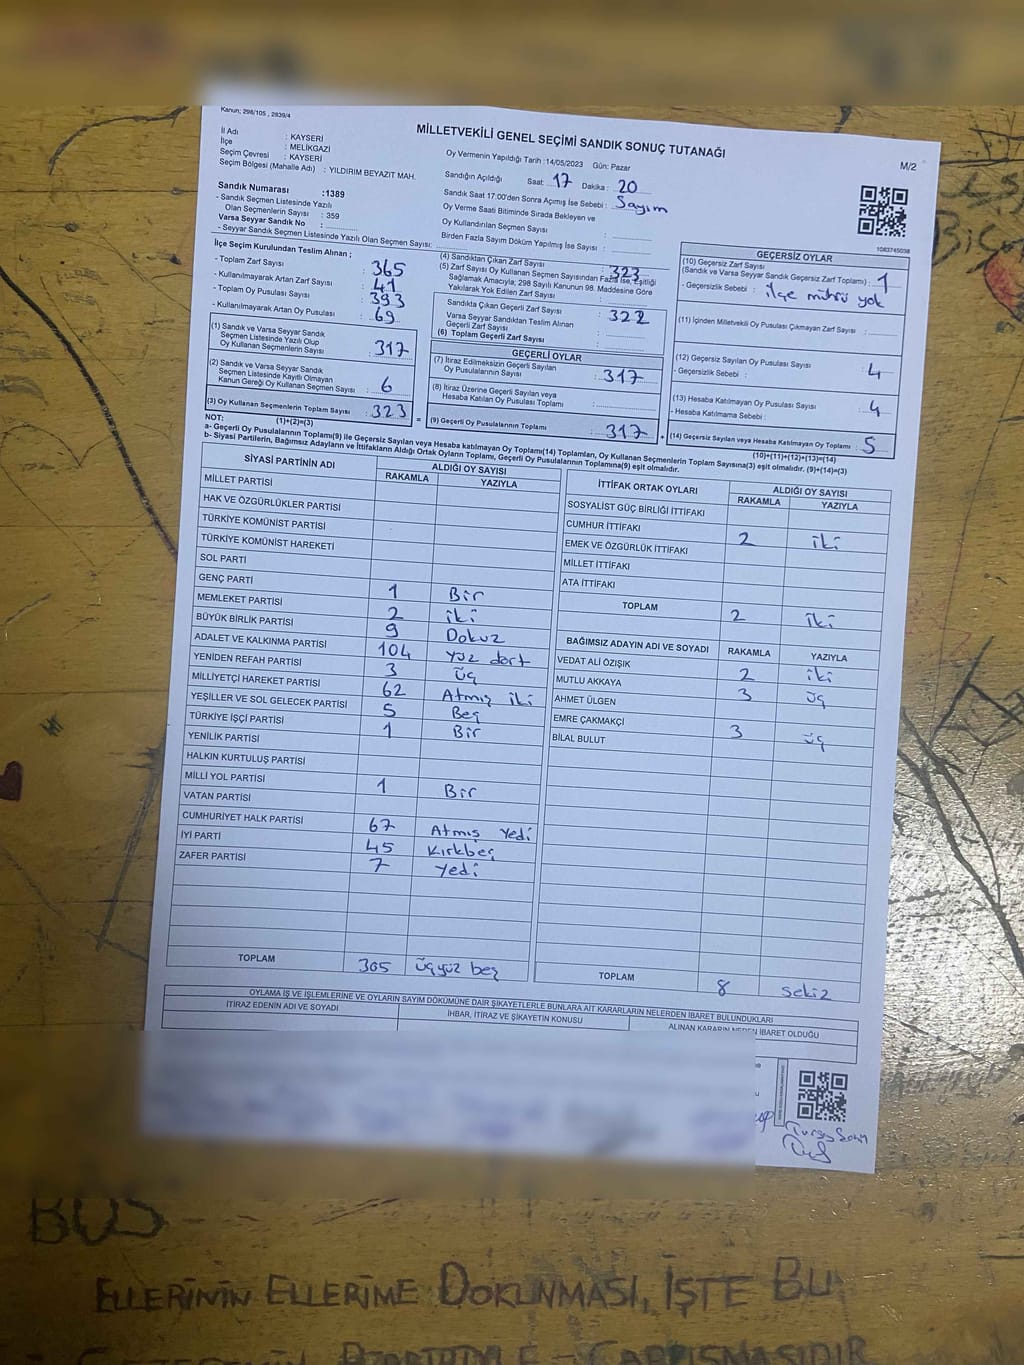 Kanun; 298/105 , 2839/4
MİLLETVEKİLİ GENEL SEÇİMİ SANDIK SONUÇ TUTANAĞI
M/2
İl Adı : KAYSERİ
İlçe : MELİKGAZİ
Seçim Çevresi : KAYSERİ
Seçim Bölgesi (Mahalle Adı) : YILDIRIM BEYAZIT MAH.
Sandık Numarası :1389
- Sandık Seçmen Listesinde Yazılı
Olan Seçmenlerin Sayısı : 359
Varsa Seyyar Sandık No :
- Seyyar Sandık Seçmen Listesinde Yazılı Olan Seçmen Sayısı:
Oy Vermenin Yapıldığı Tarih :14/05/2023 Gün: Pazar
Sandığın Açıldığı Saat: 17 Dakika : 20
Sandık Saat 17:00'den Sonra Açılmış İse Sebebi : Sayım
Oy Verme Saati Bitiminde Sırada Bekleyen ve
Oy Kullandırılan Seçmen Sayısı :
Birden Fazla Sayım Döküm Yapılmış İse Sayısı :
1083745038
İlçe Seçim Kurulundan Teslim Alınan ;
- Toplam Zarf Sayısı : 365
- Kullanılmayarak Artan Zarf Sayısı : 41
- Toplam Oy Pusulası Sayısı : 393
- Kullanılmayarak Artan Oy Pusulası : 69
(1) Sandık ve Varsa Seyyar Sandık
Seçmen Listesinde Yazılı Olup
Oy Kullanan Seçmenlerin Sayısı : 317
(2) Sandık ve Varsa Seyyar Sandık
Seçmen Listesinde Kayıtlı Olmayan
Kanun Gereği Oy Kullanan Seçmen Sayısı : 6
(3) Oy Kullanan Seçmenlerin Toplam Sayısı : 323
(1)+(2)=(3)
(4) Sandıktan Çıkan Zarf Sayısı : 323
(5) Zarf Sayısı Oy Kullanan Seçmen Sayısından Fazla İse, Eşitliği
Sağlamak Amacıyla; 298 Sayılı Kanunun 98. Maddesine Göre
Yakılarak Yok Edilen Zarf Sayısı :
Sandıkta Çıkan Geçerli Zarf Sayısı : 322
Varsa Seyyar Sandıktan Teslim Alınan
Geçerli Zarf Sayısı :
(6) Toplam Geçerli Zarf Sayısı :
GEÇERLİ OYLAR
(7) İtiraz Edilmeksizin Geçerli Sayılan
Oy Pusulalarının Sayısı : 317
(8) İtiraz Üzerine Geçerli Sayılan veya
Hesaba Katılan Oy Pusulası Toplamı :
= (9) Geçerli Oy Pusulalarının Toplamı : 317
GEÇERSİZ OYLAR
(10) Geçersiz Zarf Sayısı
(Sandık ve Varsa Seyyar Sandık Geçersiz Zarf Toplamı) : 1
- Geçersizlik Sebebi : ilçe mührü yok
(11) İçinden Milletvekili Oy Pusulası Çıkmayan Zarf Sayısı :
(12) Geçersiz Sayılan Oy Pusulası Sayısı : 4
- Geçersizlik Sebebi :
(13) Hesaba Katılmayan Oy Pusulası Sayısı : 4
- Hesaba Katılmama Sebebi :
+ (14) Geçersiz Sayılan veya Hesaba Katılmayan Oy Toplamı : 5
(10)+(11)+(12)+(13)=(14)
NOT:
a- Geçerli Oy Pusulalarının Toplamı(9) ile Geçersiz Sayılan veya Hesaba katılmayan Oy Toplamı(14) Toplamları, Oy Kullanan Seçmenlerin Toplam Sayısına(3) eşit olmalıdır. (9)+(14)=(3)
b- Siyasi Partilerin, Bağımsız Adayların ve İttifakların Aldığı Ortak Oyların Toplamı, Geçerli Oy Pusulalarının Toplamına(9) eşit olmalıdır.
SİYASİ PARTİNİN ADI ALDIĞI OY SAYISI
RAKAMLA YAZIYLA
MİLLET PARTİSİ
HAK VE ÖZGÜRLÜKLER PARTİSİ
TÜRKİYE KOMÜNİST PARTİSİ
TÜRKİYE KOMÜNİST HAREKETİ
SOL PARTİ
GENÇ PARTİ 1 Bir
MEMLEKET PARTİSİ 2 iki
BÜYÜK BİRLİK PARTİSİ 9 Dokuz
ADALET VE KALKINMA PARTİSİ 104 yüz dört
YENİDEN REFAH PARTİSİ 3 üç
MİLLİYETÇİ HAREKET PARTİSİ 62 Atmış iki
YEŞİLLER VE SOL GELECEK PARTİSİ 5 Beş
TÜRKİYE İŞÇİ PARTİSİ 1 Bir
YENİLİK PARTİSİ
HALKIN KURTULUŞ PARTİSİ
MİLLİ YOL PARTİSİ 1 Bir
VATAN PARTİSİ
CUMHURİYET HALK PARTİSİ 67 Atmış Yedi
İYİ PARTİ 45 Kırkbeş
ZAFER PARTİSİ 7 Yedi
TOPLAM 305 üçyüz beş
İTTİFAK ORTAK OYLARI ALDIĞI OY SAYISI
RAKAMLA YAZIYLA
SOSYALİST GÜÇ BİRLİĞİ İTTİFAKI
CUMHUR İTTİFAKI 2 iki
EMEK VE ÖZGÜRLÜK İTTİFAKI
MİLLET İTTİFAKI
ATA İTTİFAKI
TOPLAM 2 iki
BAĞIMSIZ ADAYIN ADI VE SOYADI RAKAMLA YAZIYLA
VEDAT ALİ ÖZIŞIK 2 iki
MUTLU AKKAYA 3 üç
AHMET ÜLGEN
EMRE ÇAKMAKÇİ 3 üç
BİLAL BULUT
TOPLAM 8 sekiz
OYLAMA İŞ VE İŞLEMLERİNE VE OYLARIN SAYIM DÖKÜMÜNE DAİR ŞİKAYETLERLE BUNLARA AİT KARARLARIN NELERDEN İBARET BULUNDUKLARI
İTİRAZ EDENİN ADI VE SOYADI İHBAR, İTİRAZ VE ŞİKAYETİN KONUSU ALINAN KARARIN NEDEN İBARET OLDUĞU
BUS
ELLERİNİN ELLERİME DOKUNMASI, İŞTE BU
ÇARPIŞMASIDIR